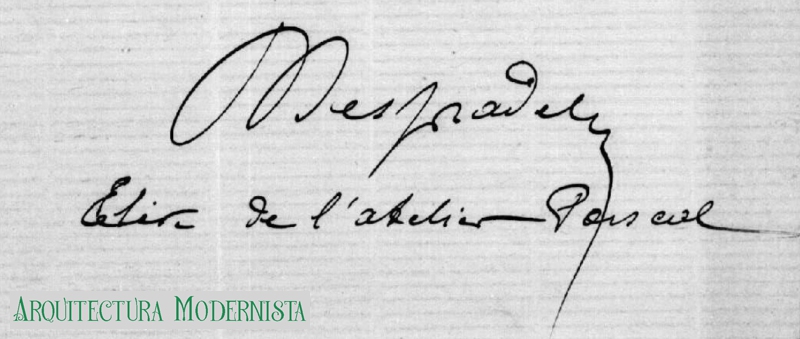 Despradelle
Elève de l'atelier Pascal
ARQUITECTURA MODERNISTA